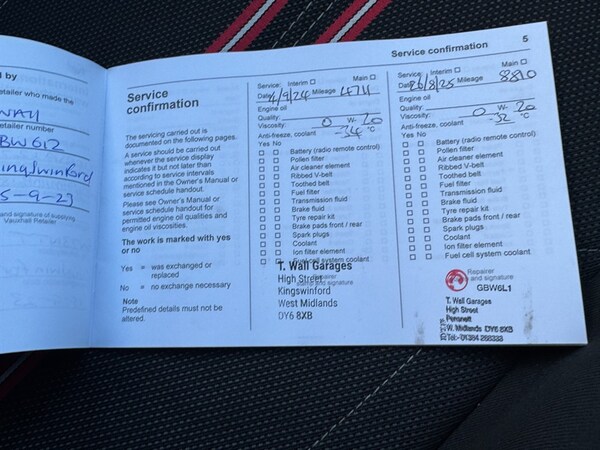 d by
etailer who made the
etailer number
5-9-23
and signature of supplying
Vauxhall Retailer
Service
confirmation
The servicing carried out is
documented on the following pages.
A service should be carried out
whenever the service display
indicates it but not later than
according to service intervals
mentioned in the Owner's Manual or
service schedule handout.
Please see Owner's Manual or
service schedule handout for
permitted engine oil qualities and
engine oil viscosities.
The work is marked with yes
or no
Yes = was exchanged or
replaced
No = no exchange necessary
Note
Predefined details must not be
altered.
Service confirmation 5
Service: Interim Main
Date 4/9/24 Mileage 4711
Engine oil
Quality:
Viscosity: 0 W- 20
Anti-freeze, coolant -34 °C
Yes No
Battery (radio remote control)
Pollen filter
Air cleaner element
Ribbed V-belt
Toothed belt
Fuel filter
Transmission fluid
Brake fluid
Tyre repair kit
Brake pads front / rear
Spark plugs
Coolant
Ion filter element
Fuel cell system coolant
Repairer
stamp and signature
T. Wall Garages
High Street
Kingswinford
West Midlands
DY6 8XB
Service: Interim Main
Date 26/8/25 Mileage 8810
Engine oil
Quality:
Viscosity: 0 W- 20
Anti-freeze, coolant -32 °C
Yes No
Battery (radio remote control)
Pollen filter
Air cleaner element
Ribbed V-belt
Toothed belt
Fuel filter
Transmission fluid
Brake fluid
Tyre repair kit
Brake pads front / rear
Spark plugs
Coolant
Ion filter element
Fuel cell system coolant
Repairer
and signature
GBW6L1
T. Wall Garages
High Street
Pensnett
W. Midlands DY6 8XB
Tel:- 01384 288333